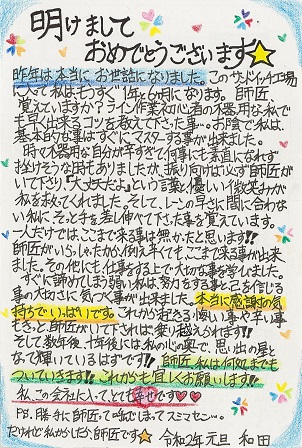 明けまして
おめでとうございます
昨年は本当にお世話になりました。このサンドイッチ工場
に入って私はもうすぐ1年と6カ月になります。師匠
覚えていますか?ライン作業初心者の不器用な私で
も早く出来るコツを教えて下さった事…。お陰で私は、
基本的な事はすぐにマスターする事が出来ました。
時々不器用な自分が辛すぎて何事にも素直になれず
挫けそうな時もありましたが、振り向けば必ず師匠が
いて下さり"大丈夫だよ"という言葉と優しい微笑みが
私を救ってくれました。そして、レーンの早さに間に合わな
い私に、そっと手を差し伸べて下さった事を覚えています。
一人だけでは、ここまで来る事は無かったと思います!!
師匠がいらっしゃたから、例え辛くても、ここまで来る事が出来
ました。その他にも仕事をする上で大切な事を学びました。
すぐに諦めてしまう弱い私は、努力をする事と己を信じる
事の大切さに気づく事が出来ました。本当に感謝の気
持ちでいっぱいです。これから起きる凄い事や辛い事
もきっと師匠がいて下されば乗り越えられます!!
そして数年後、十年後には私の心の奥で、思い出の星と
なって輝いているはずです!!師匠、私は何処までも
ついていきます!!これからも宜しくお願いします!!
私、この会社に入って、とても幸せです♡♡
P.S. 勝手に師匠って呼んでしまってスミマセン…。
だけれど私からしたら師匠です☆ 令和2年元旦 和田